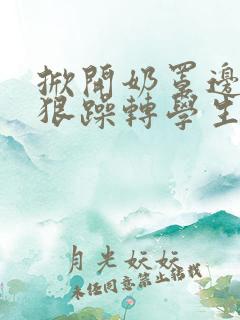 掀開奶罩邊
狠躁轉學生
月光妖妖
未经同意禁止转载